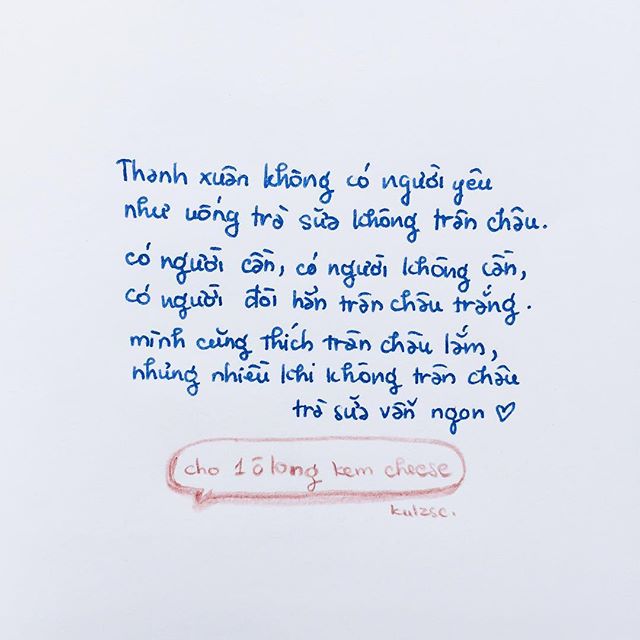 Thanh xuân không có người yêu
như uống trà sữa không trân châu.
có người cần, có người không cần,
có người đòi hẳn trân châu trắng.
mình cũng thích trân châu lắm,
nhưng nhiều khi không trân châu
trà sữa vẫn ngon ♡
cho 1 ô long kem cheese
kulzsc.